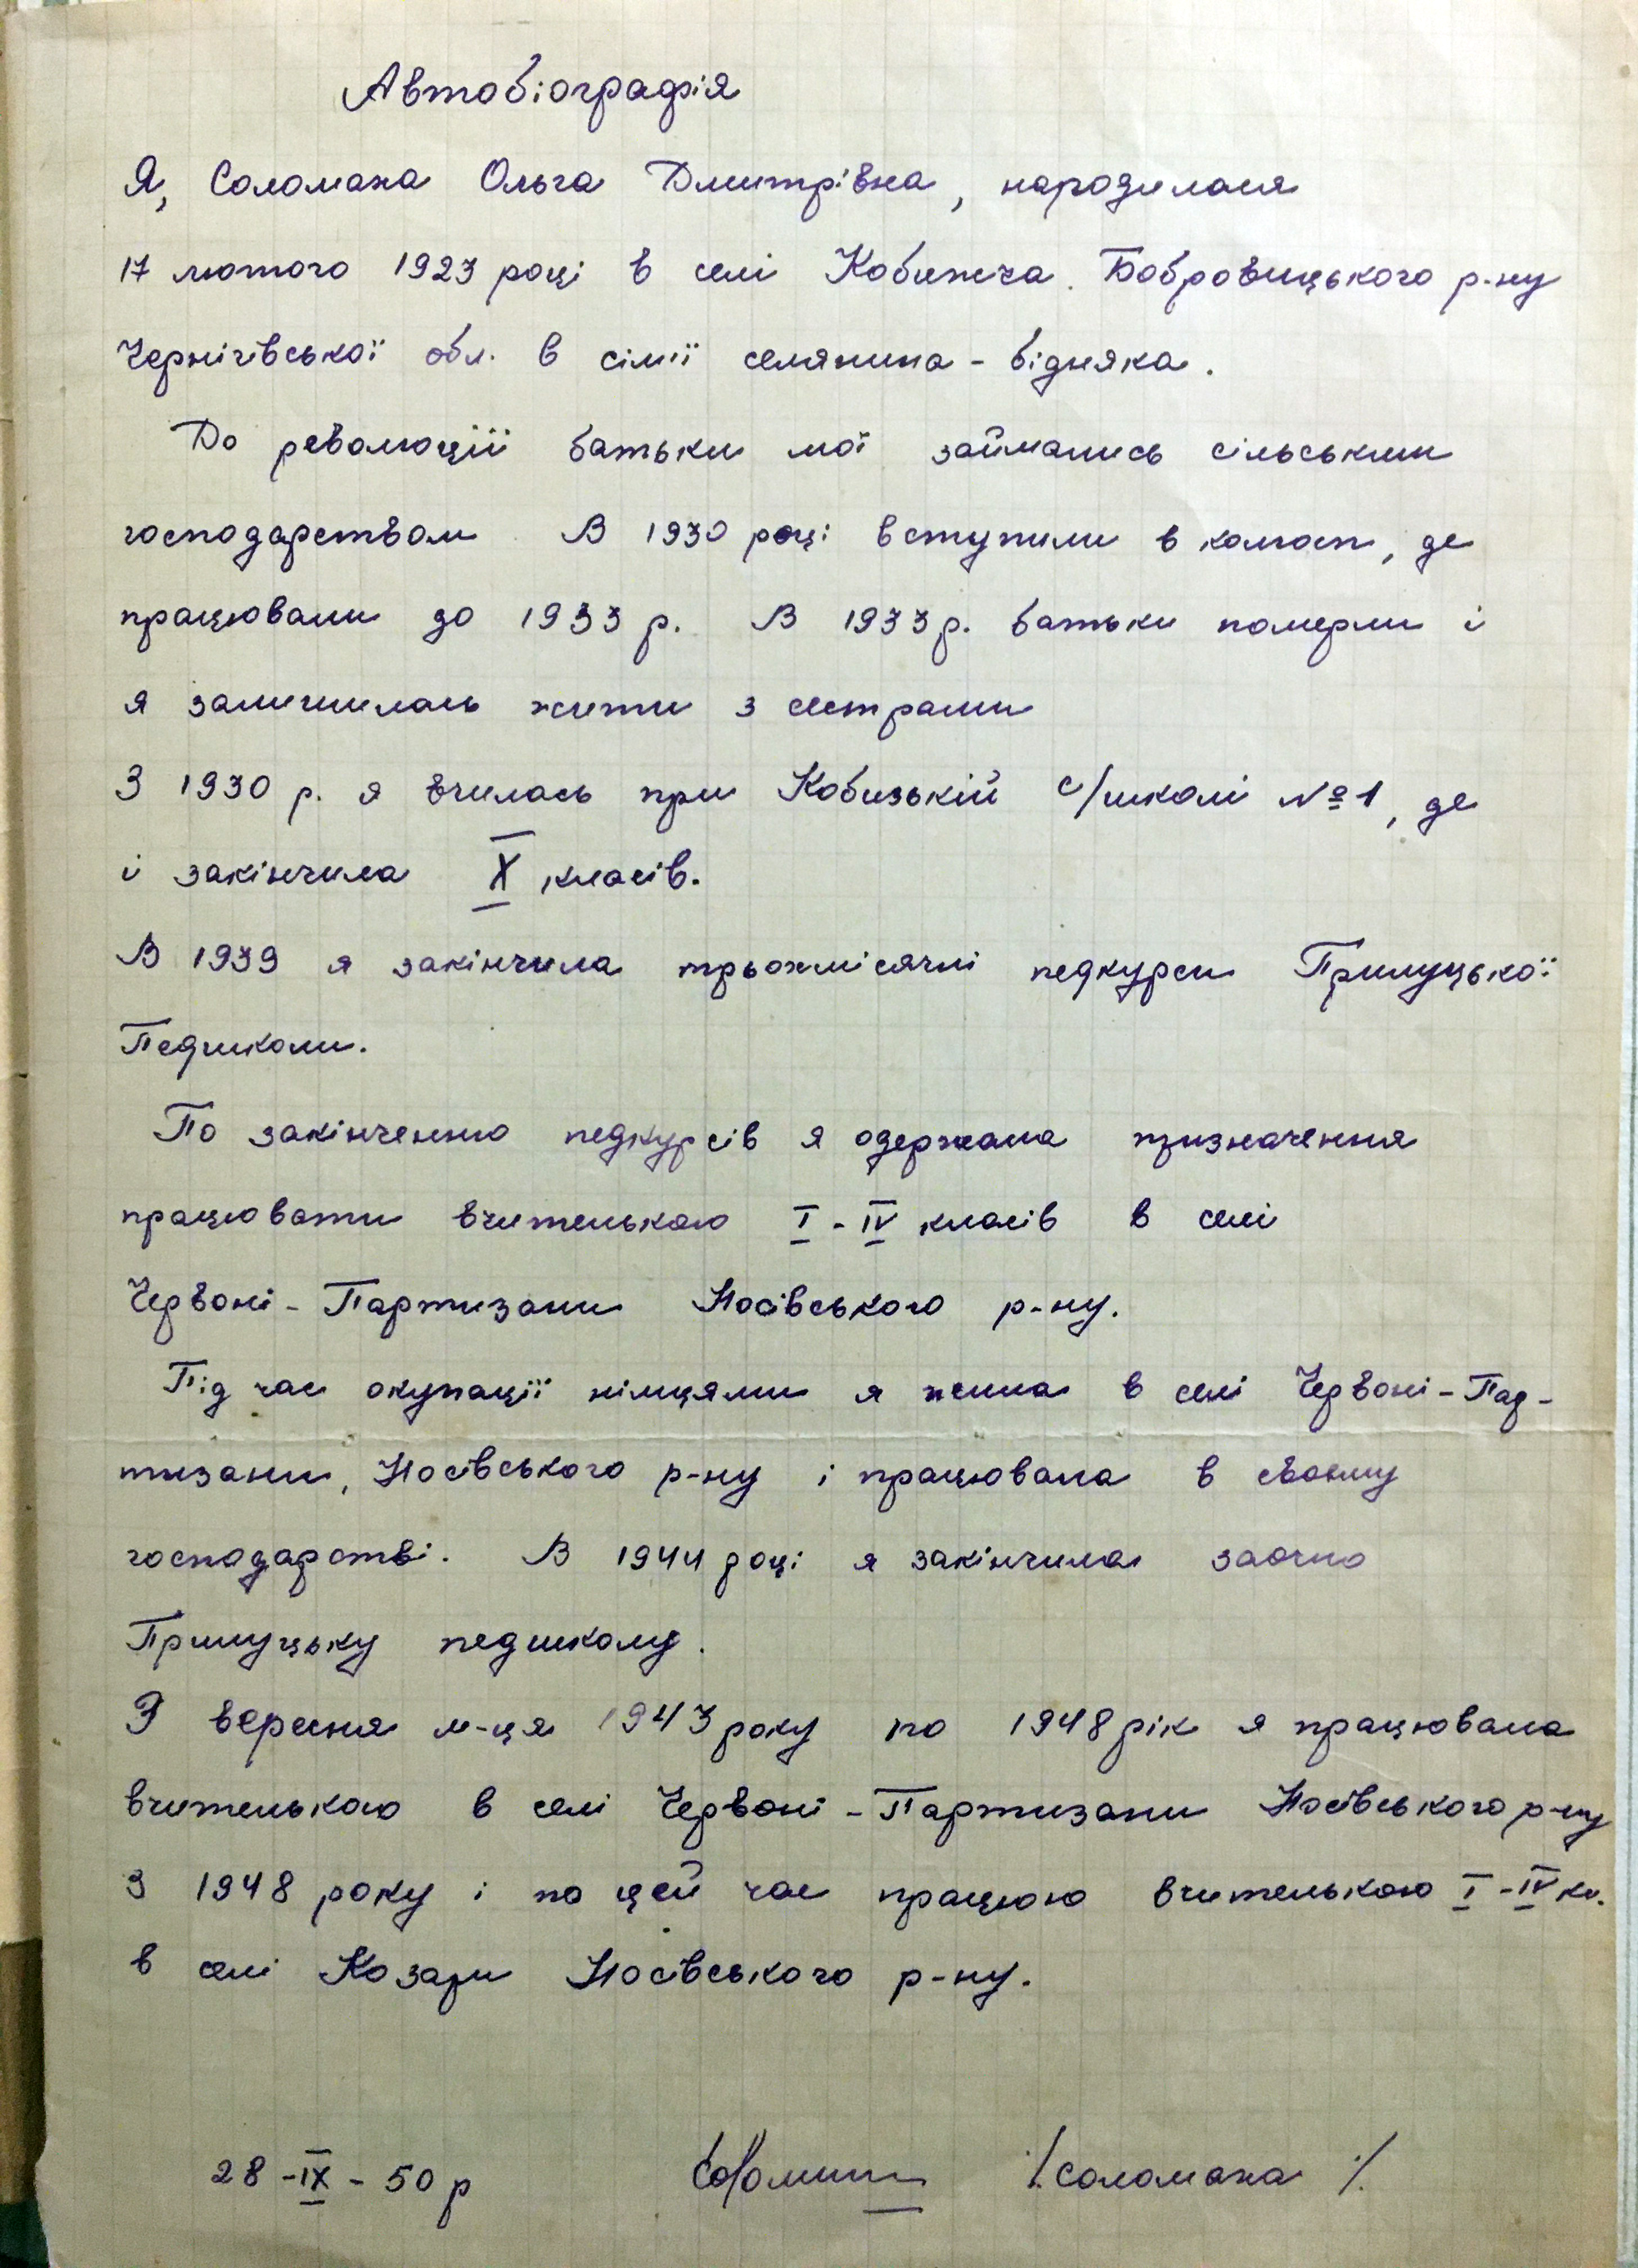 Автобіографія
Я, Соломаха Ольга Дмитрівна, народилася
17 лютого 1923 році в селі Кобижча. Бобровицького р-ну
Чернігівської обл. в сімії селянина - бідняка.
До революції батьки мої займались сільським
господарством. В 1930 році вступили в колгосп, де
працювали до 1933 р. В 1933 р. батьки померли і
я залишилась жити з сестрами
З 1930 р. я вчилась при Кобизькій с/школі №1, де
і закінчила X класів.
В 1939 я закінчила трьохмісячні педкурси Прилуцької
Педшколи.
По закінченню педкурсів я одержала призначення
працювати вчителькою I - IV класів в селі
Червоні - Партизани Носівського р-ну.
Під час окупації німцями я жила в селі Червоні - Пар-
тизани, Носівського р-ну і працювала в своєму
господарстві. В 1944 році я закінчила заочно
Прилуцьку педшколу.
З вересня м-ця 1943 року по 1948 рік я працювала
вчителькою в селі Червоні - Партизани Носівського р-ну
З 1948 року і по цей час працюю вчителькою I - IV кл.
в селі Козари Носівського р-ну.
28 - IX - 50 р /. Соломаха ./